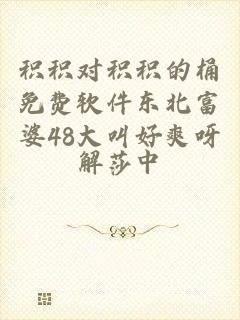 积积对积积的桶
免费软件东北富
婆48大叫好爽呀
解莎中